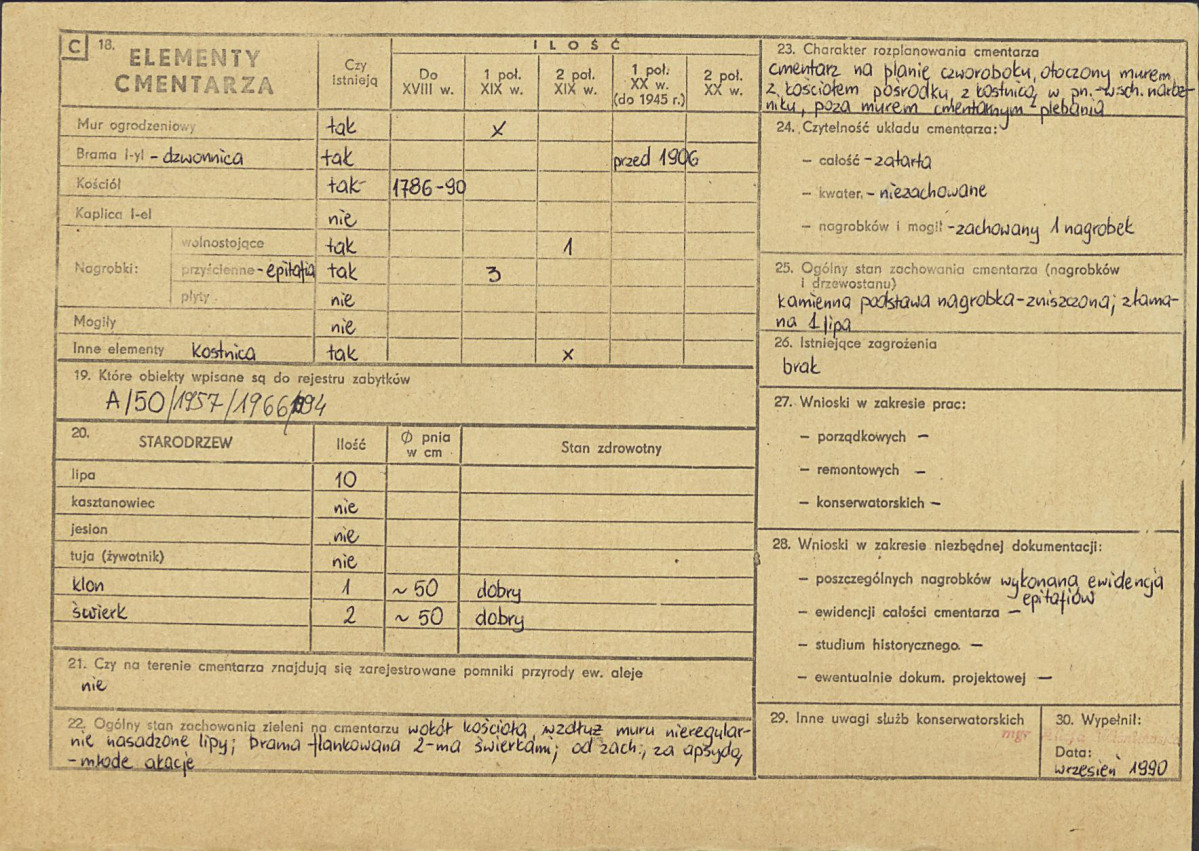 C 18. ELEMENTY CMENTARZA
Czy istnieją
ILOŚĆ
Do XVIII w.
1 poł. XIX w.
2 poł. XIX w.
1 poł. XX w. (do 1945 r.)
2 poł. XX w.
Mur ogrodzeniowy tak x
Brama i-yl - dzwonnica tak przed 1906
Kościół tak 1786-90
Kaplica i-el nie
Nagrobki:
wolnostojące tak 1
przyścienne - epitafia tak 3
płyty nie
Mogiły nie
Inne elementy kostnica tak x
19. Które obiekty wpisane są do rejestru zabytków
A/50/1957/1966/94
20. STARODRZEW Ilość Ø pnia w cm Stan zdrowotny
lipa 10
kasztanowiec nie
jesion nie
tuja (żywotnik) nie
klon 1 ~50 dobry
świerk 2 ~50 dobry
21. Czy na terenie cmentarza znajdują się zarejestrowane pomniki przyrody ew. aleje
nie
22. Ogólny stan zachowania zieleni na cmentarzu wokół kościoła, wzdłuż muru nieregular-
nie nasadzone lipy; brama flankowana 2-ma świerkami; od zach., za apsydą,
- młode akacje
23. Charakter rozplanowania cmentarza
cmentarz na planie czworoboku, otoczony murem,
z kościołem pośrodku, z kostnicą w pn.-wsch. naroż-
niku, poza murem cmentarnym - plebania
24. Czytelność układu cmentarza:
- całość - zatarta
- kwater. - niezachowane
- nagrobków i mogił - zachowany 1 nagrobek
25. Ogólny stan zachowania cmentarza (nagrobków
i drzewostanu)
kamienna podstawa nagrobka - zniszczona; złama-
na 1 lipa
26. Istniejące zagrożenia
brak
27. Wnioski w zakresie prac:
- porządkowych -
- remontowych -
- konserwatorskich -
28. Wnioski w zakresie niezbędnej dokumentacji:
- poszczególnych nagrobków wykonana ewidencja
epitafiów
- ewidencji całości cmentarza -
- studium historycznego. -
- ewentualnie dokum. projektowej -
29. Inne uwagi służb konserwatorskich
30. Wypełnił:
mgr
Data:
wrzesień 1990